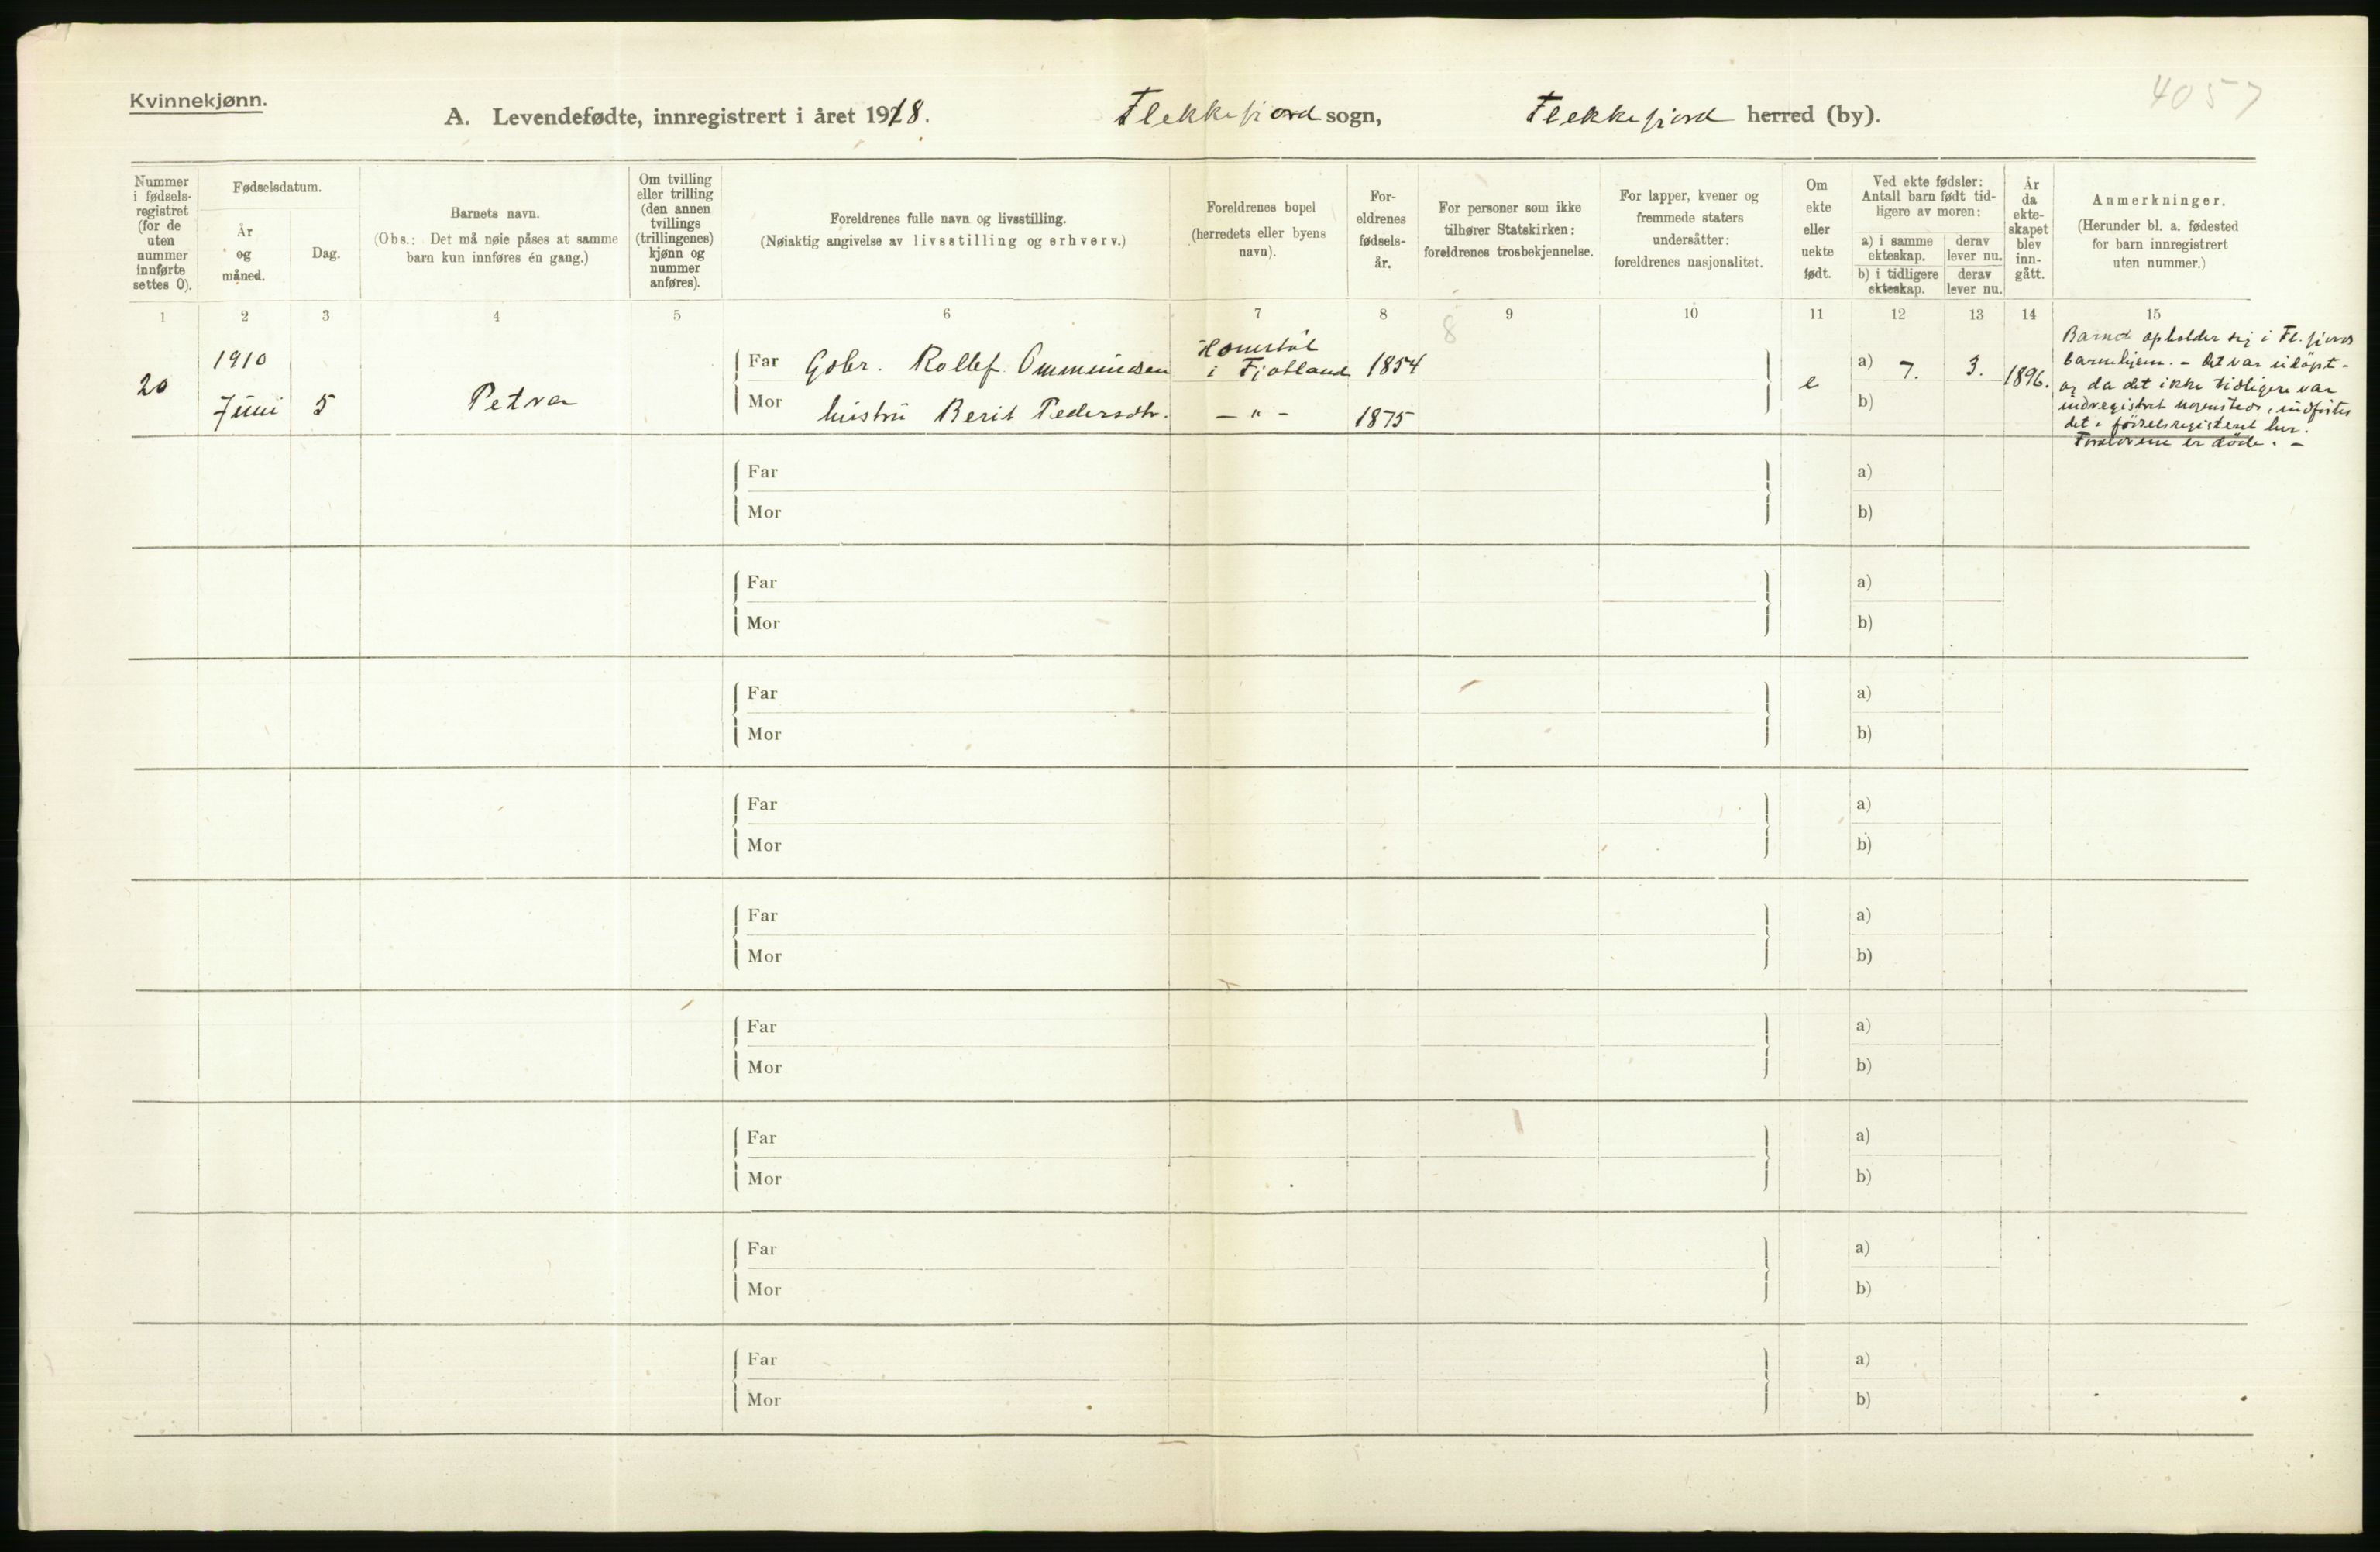 4057
Kvinnekjønn.
A. Levendefødte, innregistrert i året 1918. Flekkefjord sogn, Flekkefjord herred (by).
Nummer
i fødsels-
registret
(for de
uten
nummer
innførte
settes 0).
Fødselsdatum.
År
og
måned.
Dag.
Barnets navn.
(Obs.: Det må nøie påses at samme
barn kun innføres én gang.)
Om tvilling
eller trilling
(den annen
tvillings
(trillingenes)
kjønn og
nummer
anføres).
Foreldrenes fulle navn og livsstilling.
(Nøiaktig angivelse av livsstilling og erhverv.)
Foreldrenes bopel
(herredets eller byens
navn).
For-
eldrenes
fødsels-
år.
For personer som ikke
tilhører Statskirken:
foreldrenes trosbekjennelse.
For lapper, kvener og
fremmede staters
undersåtter:
foreldrenes nasjonalitet.
Om
ekte
eller
uekte
født.
Ved ekte fødsler:
Antall barn født tid-
ligere av moren:
a) i samme
ekteskap.
derav
lever nu.
b) i tidligere
ekteskap.
derav
lever nu.
År
da
ekte-
skapet
blev
inn-
gått.
Anmerkninger.
(Herunder bl. a. fødested
for barn innregistrert
uten nummer.)
1 2 3 4 5 6 7 8 9 10 11 12 13 14 15
8
20
1910
Juni 5
Petra
Far Gbr. Rollef Ommundsen
Mor hustru Berit Pedersdtr.
Homstøl
i Fjotland
— " —
1854
1875
e
a) 7. 3.
b)
1896.
Barnet opholder sig i Fl. fjords
barnehjem. – Det var udøpt –
og da det ikke tidligere var
indregistret nogensteds, indføres
det i fødselsregisteret her.
Foreldrene er døde. –
Far
Mor
a)
b)
Far
Mor
a)
b)
Far
Mor
a)
b)
Far
Mor
a)
b)
Far
Mor
a)
b)
Far
Mor
a)
b)
Far
Mor
a)
b)
Far
Mor
a)
b)
Far
Mor
a)
b)